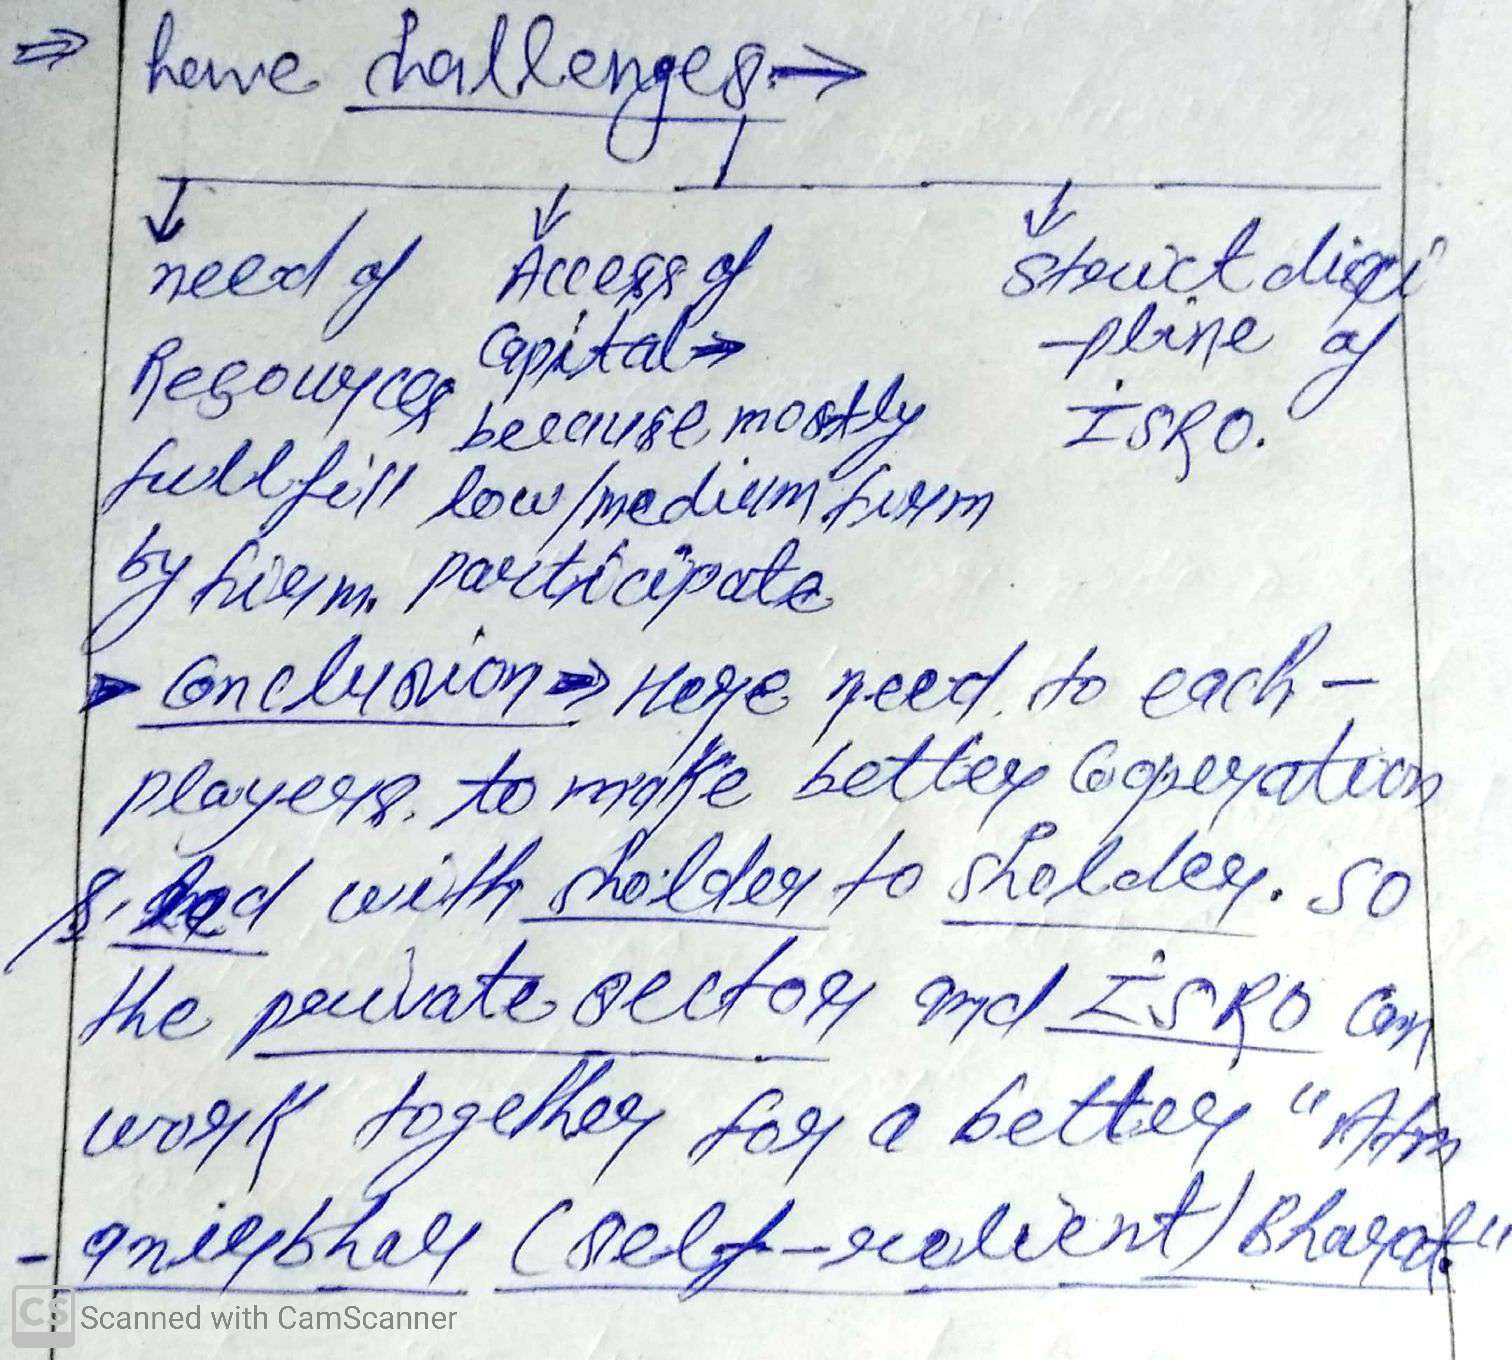 ⇒ have challenges →
need of Access of Strict disci
Resources Capital → -pline of
because mostly ISRO.
fullfill low/medium firm
by firm. participate
Conclusion ⇒ Here need to each -
players. to make better Cooperation
& with sholder to sholder. So
the private sector and ISRO Can
work together for a better "Atm
-anirbhar (self-relient) Bharat."
CS Scanned with CamScanner